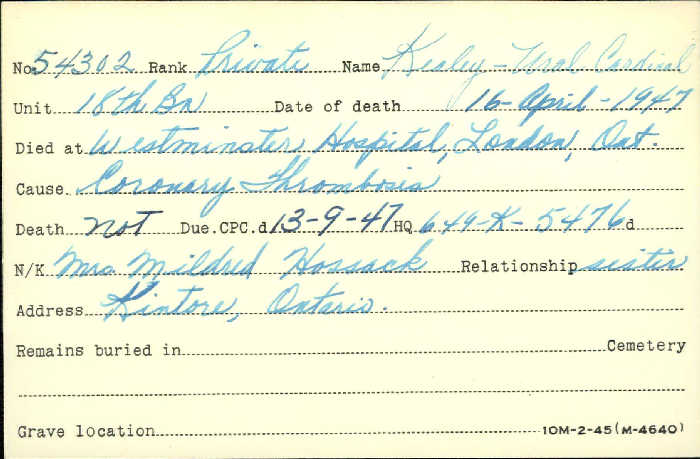 No 54302 Rank Private Name Kealey - Ural Cardinal
Unit 18th Bn Date of death 16-April-1947
Died at Westminster Hospital, London, Ont.
Cause Coronary Thrombosis
Death not Due.CPC.d 13-9-47 HQ 649-K-5476 d
N/K Mrs Mildred Hossack Relationship sister
Address Kintore, Ontario.
Remains buried in Cemetery
Grave location 10M-2-45(M-4640)